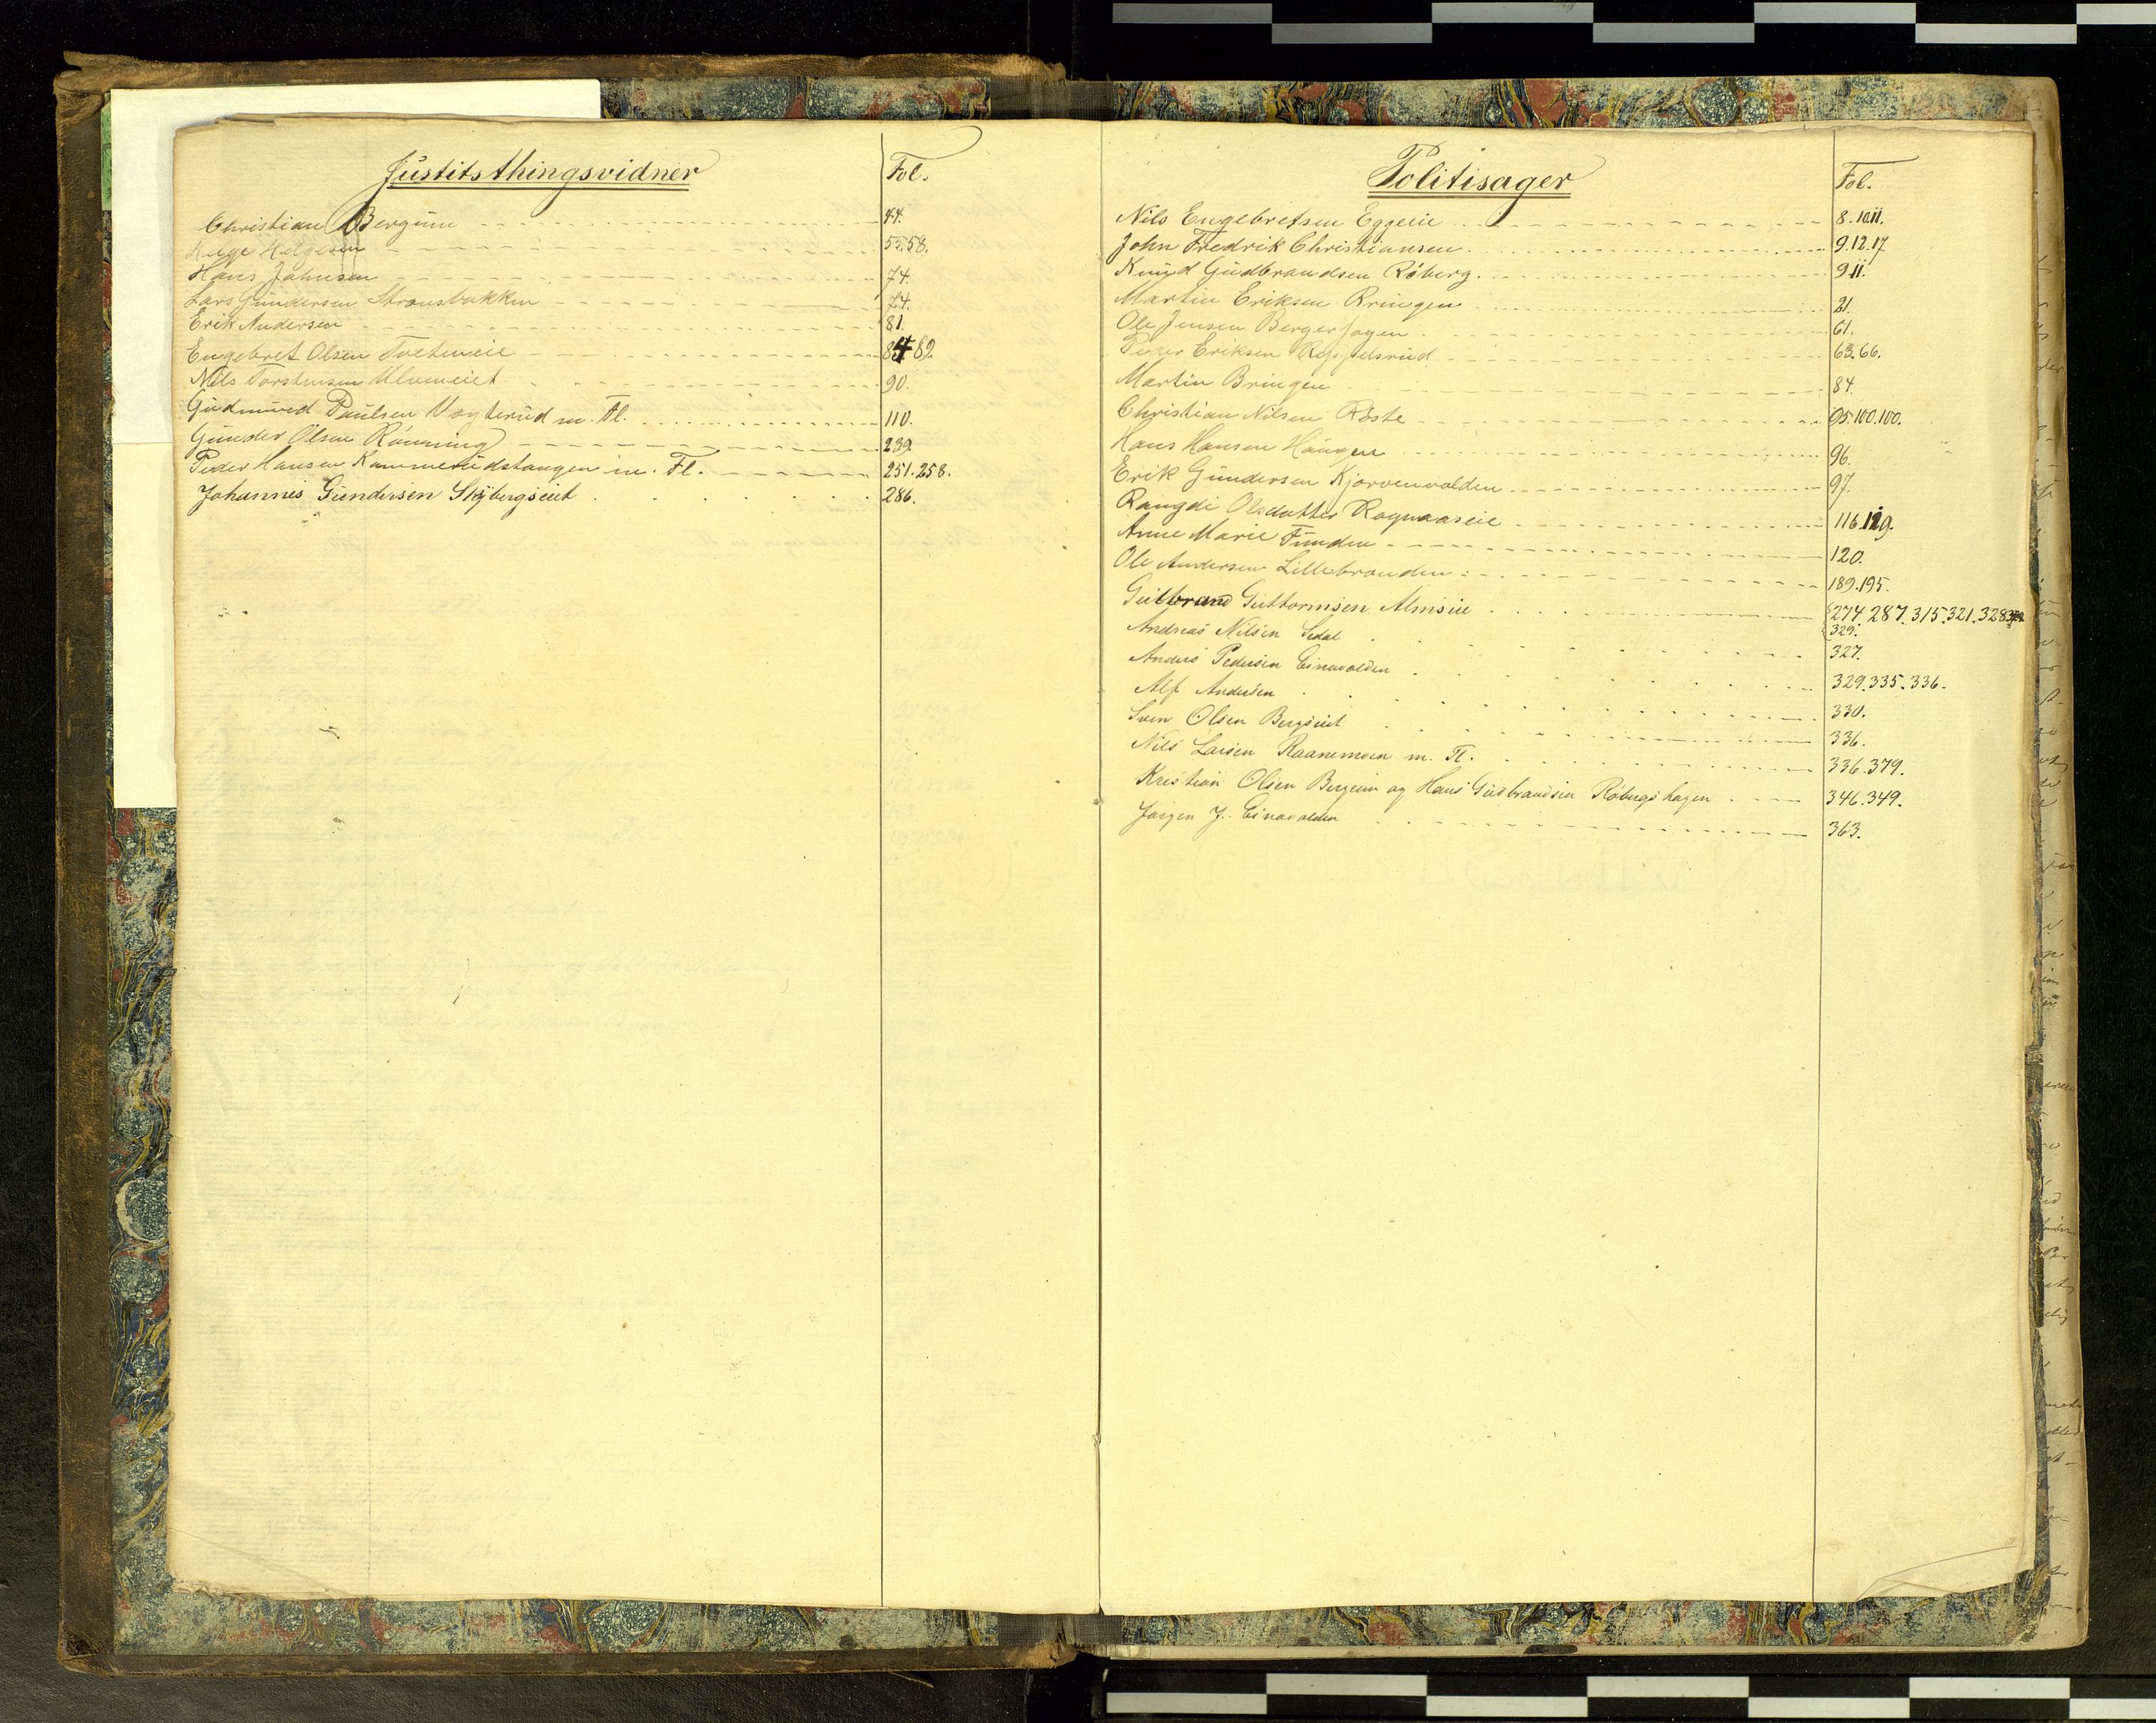 Justitsthingsvidner Fol.
Christian Bergum 44.
Helge Helgesen 55.58.
Hans Johnsen 74.
Lars Gundersen Stransbakken 74.
Erik Andersen 81.
Engebret Olsen Tveteneie 84 89.
Nils Torstensen Ulveneiet 90.
Gudmund Paulsen Vogterud m. Fl. 110.
Gunder Olsen Rønning 239.
Peder Hansen Kammerudstangen m. Fl. 251.258.
Johannes Gundersen Skjbergseiet 286.
Politisager Fol.
Nils Engebretsen Eggeeie 8.10.11.
John Fredrik Christiansen 9.12.17
Knud Gudbrandsen Røberg. 9.11.
Martin Eriksen Bringen 21.
Ole Jensen Berger 61.
Peder Eriksen 63.66.
Martin Bringen 84.
Christian Nilsen Røste 95.100.100.
Hans Hansen Haugen 96.
Erik Gundersen Kjørvenvolden 97.
Rangdi Olsdatter Rognaaseie 116.119.
Anne Marie Funden 120.
Ole Andersen Lillebraaden 189.195.
Gulbrand Guttormsen Almseie 274.287.315.321.328
329.
Andreas Nilsen Sedal 327.
Anders Pedersen Einavolden 329.335.336.
Alf Andersen 330.
Sven Olsen Bergseiet 336.
Nils Larsen Raanemoen m. Fl. 336.379.
Kristian Olsen Bergum og Hans Gudbrandsen Røbergshagen 346.349.
Jørgen J. Einavolden 363.